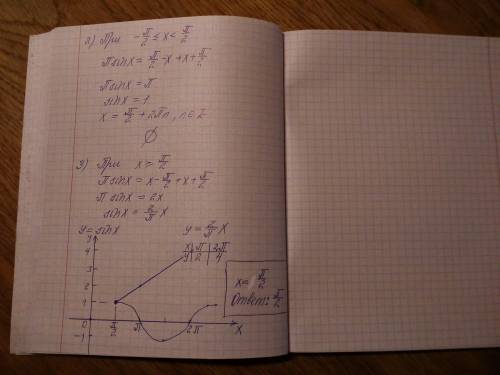 2) При -π/2 ≤ x < π/2
π sinx = π/2 - x + x + π/2
π sinx = π
sinx = 1
x = π/2 + 2πn, n∈Z
∅
3) При x ≥ π/2
π sinx = x - π/2 + x + π/2
π sinx = 2x
sinx = 2/π x
y = sinx
y = 2/π x
x | π/2 | 2π
y | 2 | 4
y
4
3
2
1
0
-1
π/2
π
2π
x
x = π/2
Ответ: π/2